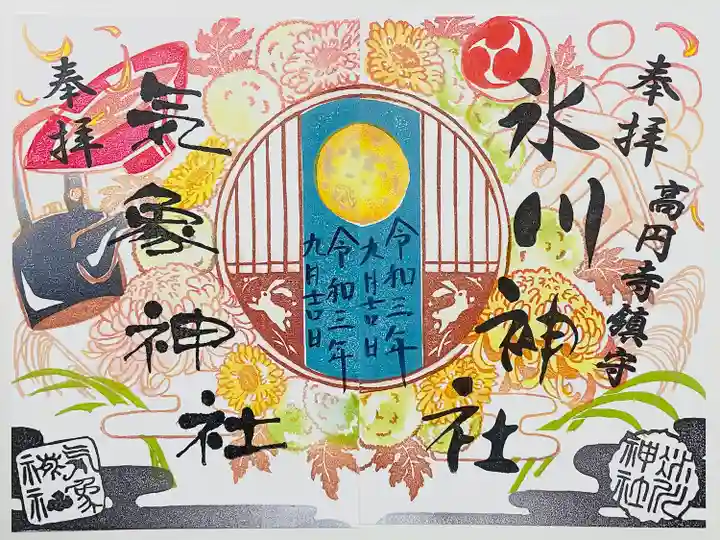 奉拝
高円寺鎮守
氷川神社
令和三年
九月吉日
令和三年
九月吉日
奉拝
気象神社
氷川
神社
気象
神社